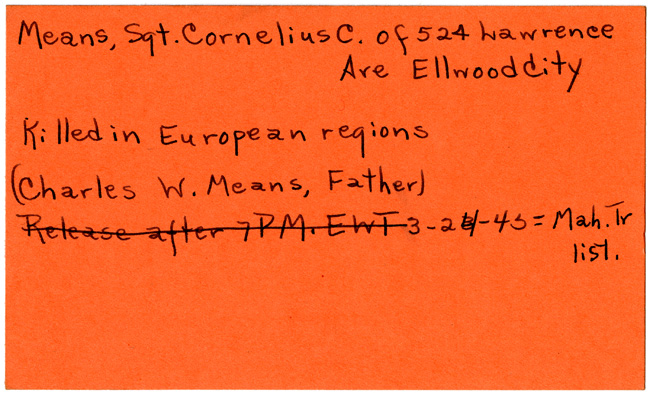 Means, Sgt. Cornelius C. of 524 Lawrence
Ave Ellwood City
Killed in European regions
(Charles W. Means, Father)
Release after 7 PM. EWT 3-24-45 = Mah. Tr
list.